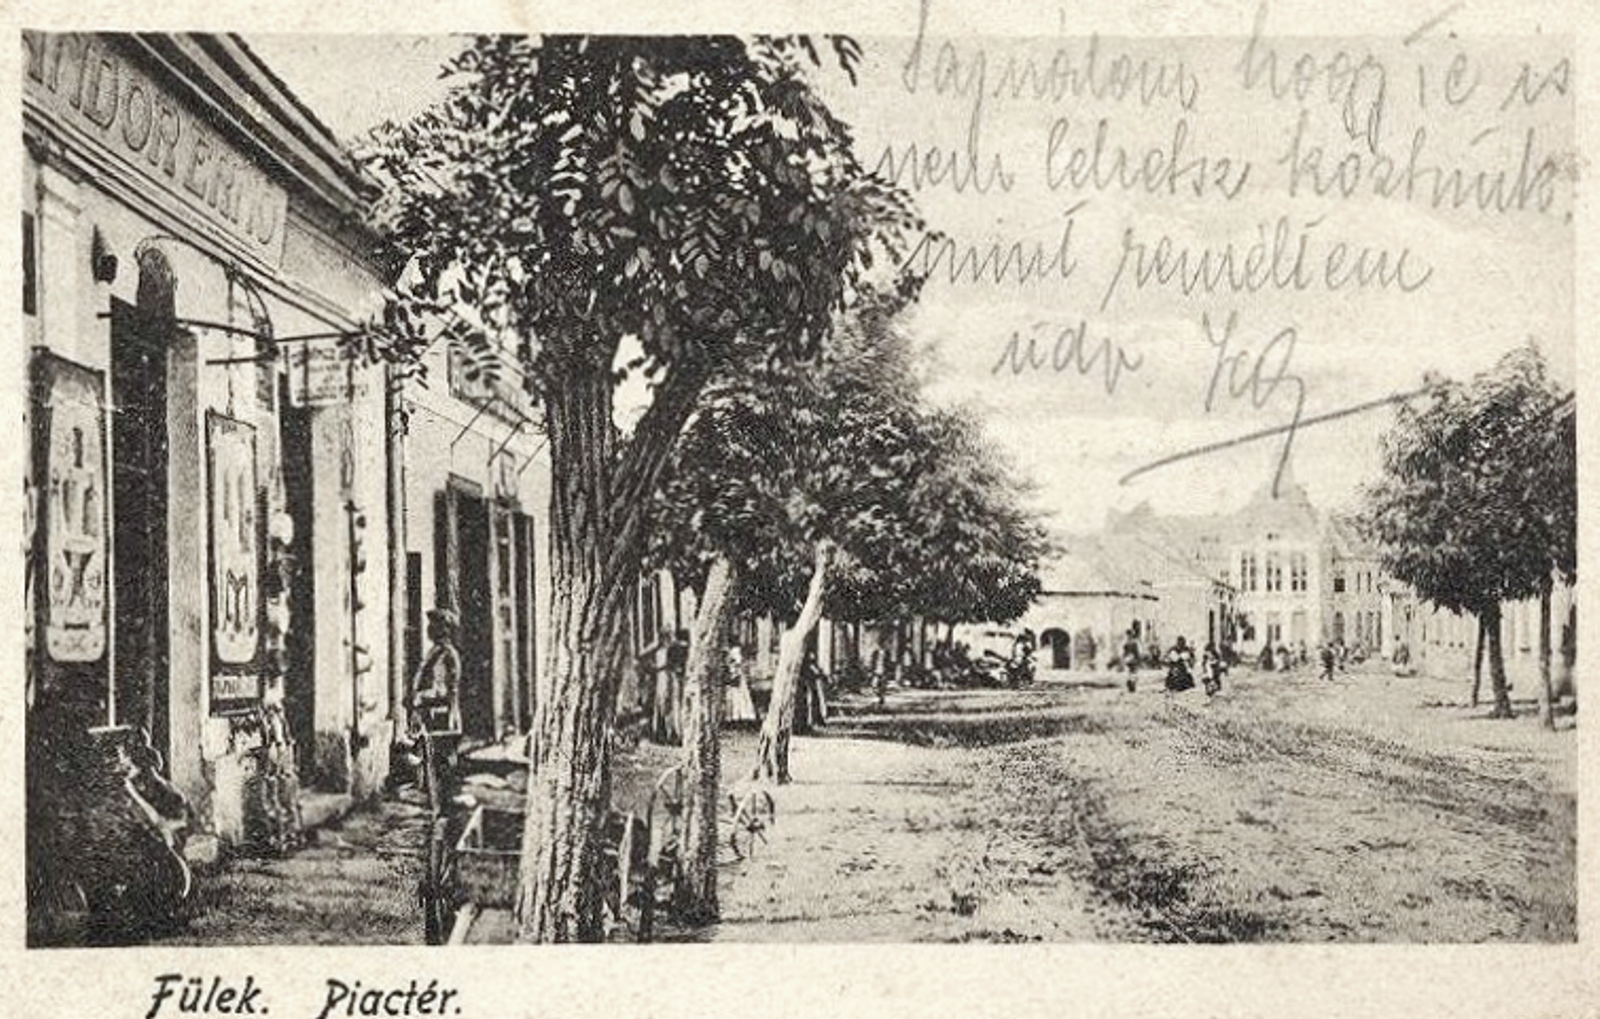 NDOR ERNŐ
Sajnálom hogy Te is
nem lehetsz köztünk,
mint reméltem
üdv.
Fülek. Piactér.